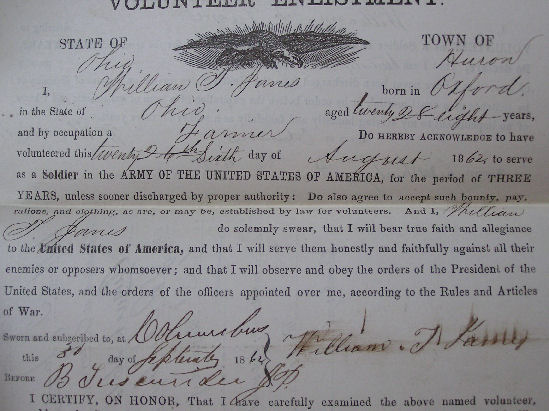 VOLUNTEER ENLISTMENT.
STATE OF TOWN OF
Ohio Huron
I, William T. James born in Oxford
in the State of Ohio. aged twenty 28 eight years,
and by occupation a Farmer Do HEREBY ACKNOWLEDGE to have
volunteered this twenty 26th Sixth day of August 1862 to serve
as a Soldier in the ARMY OF THE UNITED STATES OF AMERICA, for the period of THREE
YEARS, unless sooner discharged by proper authority: Do also agree to accept such bounty, pay,
rations, and clothing, as are, or may be, established by law for volunteers. And I, William
T. James do solemnly swear, that I will bear true faith and allegiance
to the United States of America, and that I will serve them honestly and faithfully against all their
enemies or opposers whomsoever; and that I will observe and obey the orders of the President of the
United States, and the orders of the officers appointed over me, according to the Rules and Articles
of War.
Sworn and subscribed to, at Columbus
this 3d day of September 1862 William. T. James
BEFORE B J.P.
I CERTIFY, ON HONOR, That I have carefully examined the above named volunteer,